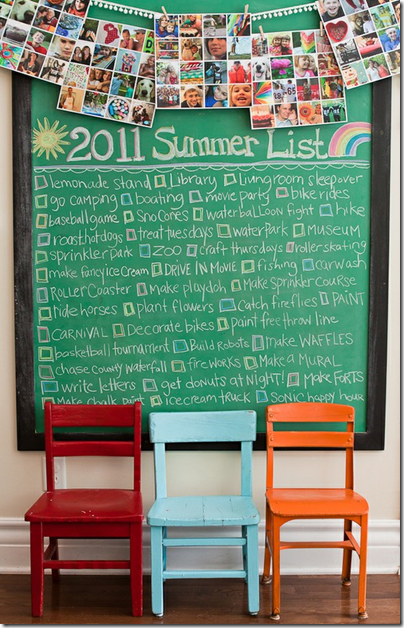 2011 Summer List
lemonade stand Library Livingroom sleepover
go camping boating movie party bike rides
baseball game Sno Cones waterballoon fight hike
roast hotdogs treat tuesdays waterPark Museum
sprinkler park ZOO craft thursdays rollerskating
make fancy ice Cream DRIVE IN MOVIE fishing carwash
Roller Coaster make playdoh Make Sprinkler Course
hide horses plant flowers Catch fireflies PAINT
CARNIVAL Decorate bikes paint free throw line
basketball tournament Build Robots make WAFFLES
chase county waterfall fireworks Make a MURAL
write letters get donuts at NIGHT! Make FORTS
Make chalk paint ice cream truck SONIC happy hour